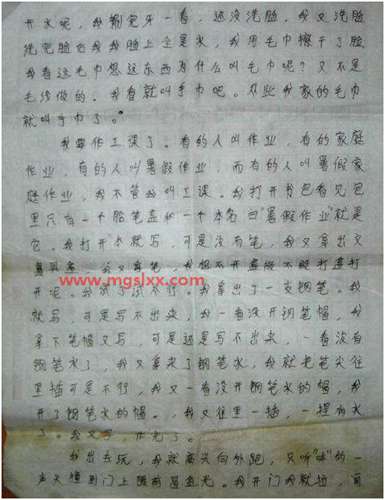 开水呢，我刷完牙一看，还没洗脸，我又洗脸
洗完脸 我脸上全是水，我用毛巾擦干了脸
我看这毛巾想这东西为什么叫毛巾呢？又不是
毛线做的。我看就叫手巾吧。从此我家的毛巾
就叫手巾了。
我要作工课了。有的人叫作业，有的家庭
作业，有的人叫暑假作业，而有的人叫暑假家
庭作业，我不管 叫工课。我打开书包看见包
里只有一个铅笔盒和一个本名曰"暑假作业"就是
它。我打开本就写，可是没有笔，我又拿出文
具盒
www.mgslxx.com
开 。我 不行。我拿出了一支钢笔。我
就写，可是写不出来，我一看没开钢笔帽，我
拿下笔帽又写，可是还是写不出来，一看没有
钢笔水了，我又拿来了钢笔水，我就把笔尖往
里插可是不行，我又一看没开钢笔水的帽，我
开了钢笔水的帽。，我又往里一插，一捏有水
了。我又写，作完了。
我出去玩，我就 头向外跑，只听"咚"的一
声 撞到门上 。我开门我就 ，前